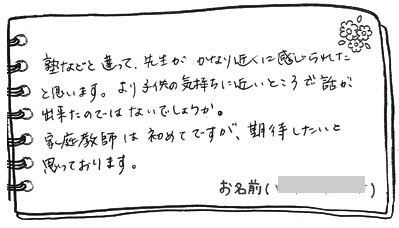 塾などと違って、先生が かなり近くに感じられた
と思います。より子供の気持ちに近いところで話が
出来たのではないでしょうか。
家庭教師は初めてですが、期待したいと
思っております。
お名前( )